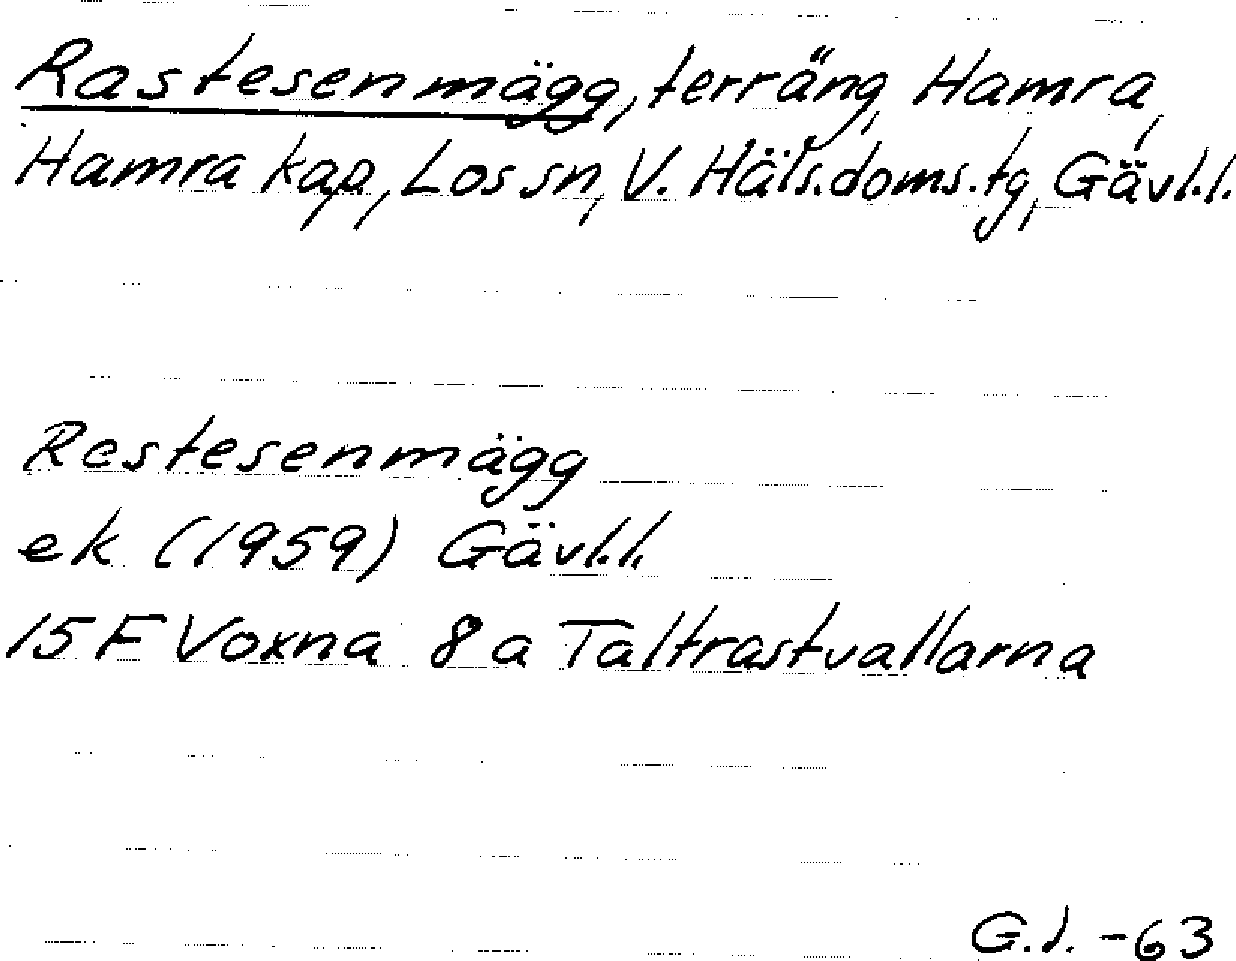 Rastesenmägg, terräng, Hamra,
Hamra kap, Los sn, V. Häls.doms.tg, Gävl.l.
Restesenmägg
ek (1959) Gävl.l.
15 F Voxna 8 a Taltrastvallarna
G.J. -63